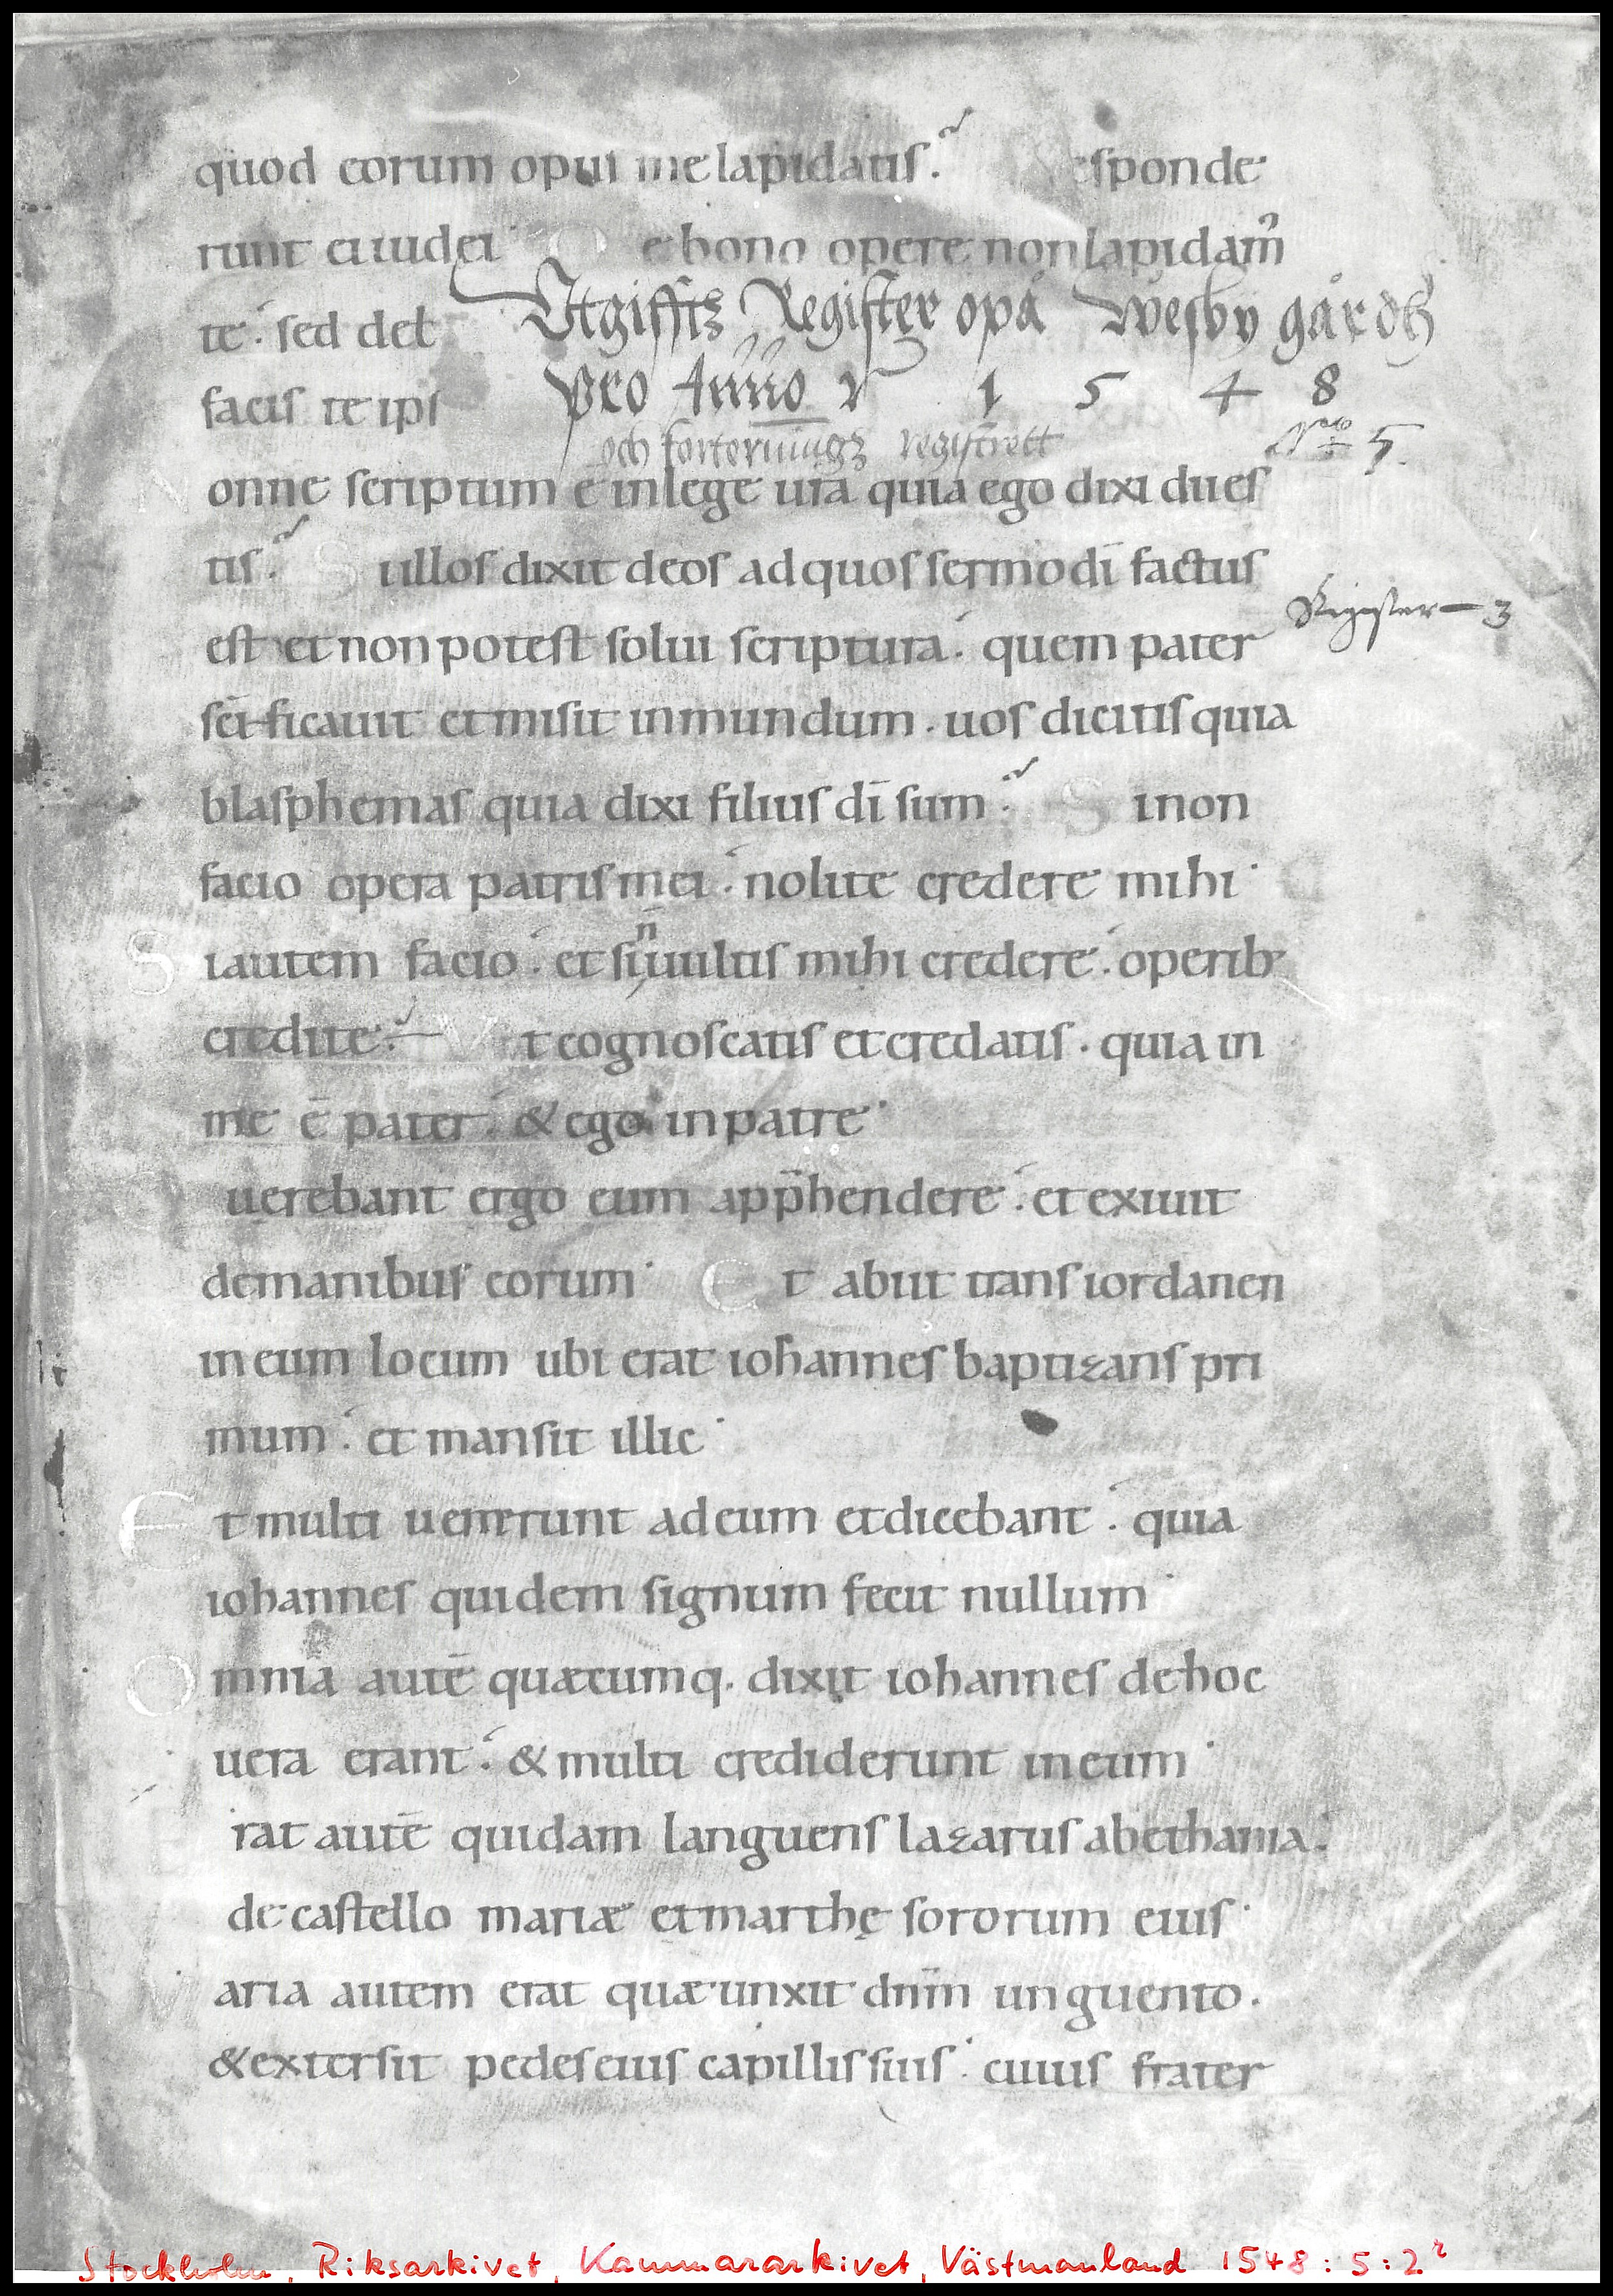 quod eorum opuſ me lapidatiſ. Reſponde
runt ei iudei De bono opere non lapidam᷒
te. sed de bl
Utgifftz Regiſter opå Weſby gårdh
faciſ te ipſ
Pro Anno 1 5 4 8
och forteringz regiſtrett N° 5.
Nonne ſcriptum ē in lege ur̄a quia ego dixi dii eſ
tiſ. Si illoſ dixit deoſ ad quoſ ſermo dī factuſ
Regiſter 3
eſt et non poteſt ſolui ſcriptura. quem pater
ſc̄ificauit et miſit in mundum. uoſ dicitiſ quia
blaſphemaſ quia dixi filiuſ dī ſum. Si non
facio opera patriſ mei. nolite credere mihi
Si autem facio. et ſi n̄ uultiſ mihi credere. operib;
credite. Vt cognoſcatiſ et credatiſ. quia in
me ē pater. & ego in patre
uerebant ergo eum app̄hendere. et exiuit
de manibuſ eorum Et abiit tranſ iordanen
in eum locum ubi erat iohanneſ baptizanſ pri
mum. et manſit illic
Et multi uenerunt ad eum et dicebant. quia
iohanneſ quidem ſignum fecit nullum
Omnia autē quæcumq. dixit iohanneſ de hoc
uera erant. & multi crediderunt in eum
rat autē quidam languenſ lazaruſ a bethania.
de caſtello mariæ et marthę ſororum eiuſ
aria autem erat quæ unxit dn̄m unguento.
& exterſit pedeſ eiuſ capilliſ ſuiſ cuiuſ frater
Stockholm, Riksarkivet, Kammararkivet, Västmanland 1548:5:2²